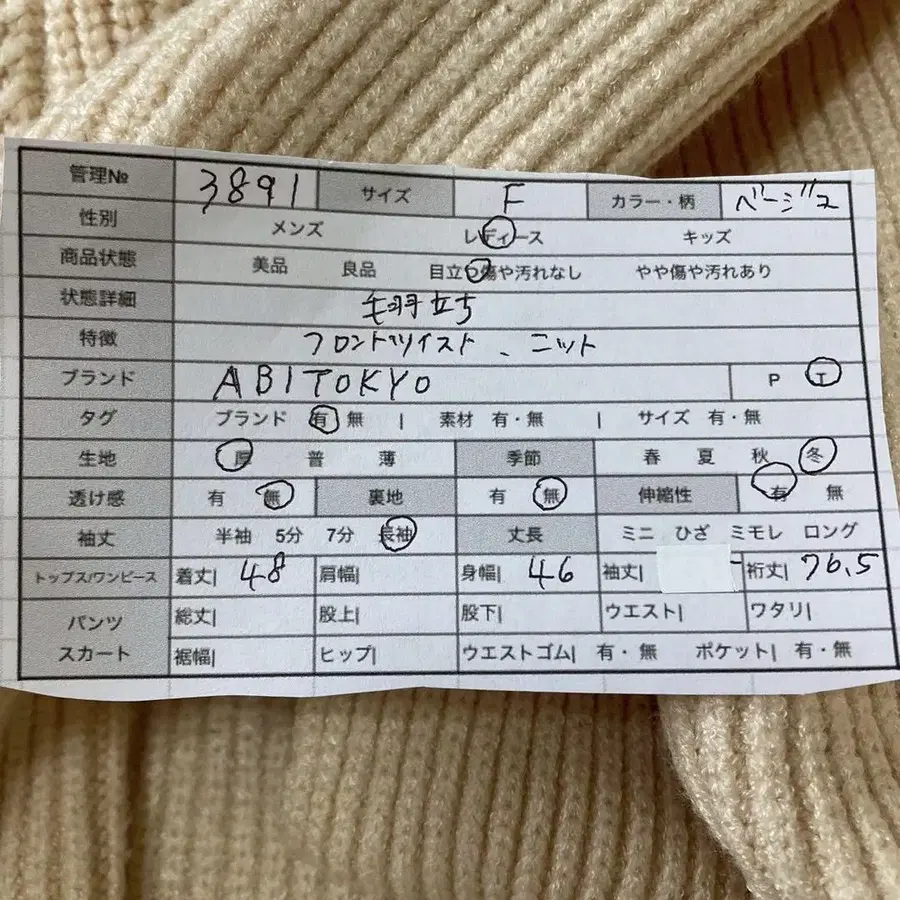 管理№ 3891 サイズ F カラー・柄 ベージュ
性別 メンズ レディース キッズ
商品状態 美品 良品 目立つ傷や汚れなし やや傷や汚れあり
状態詳細 毛羽立ち
特徴 フロントツイスト、ニット
ブランド ABITOKYO P I
タグ ブランド 有 無 | 素材 有・無 | サイズ 有・無
生地 厚 普 薄 季節 春 夏 秋 冬
透け感 有 無 裏地 有 無 伸縮性 有 無
袖丈 半袖 5分 7分 長袖 丈長 ミニ ひざ ミモレ ロング
トップス/ワンピース 着丈| 48 肩幅| 身幅| 46 袖丈| 裄丈| 76.5
パンツ 総丈| 股上| 股下| ウエスト| ワタリ|
スカート 裾幅| ヒップ| ウエストゴム| 有・無 ポケット| 有・無